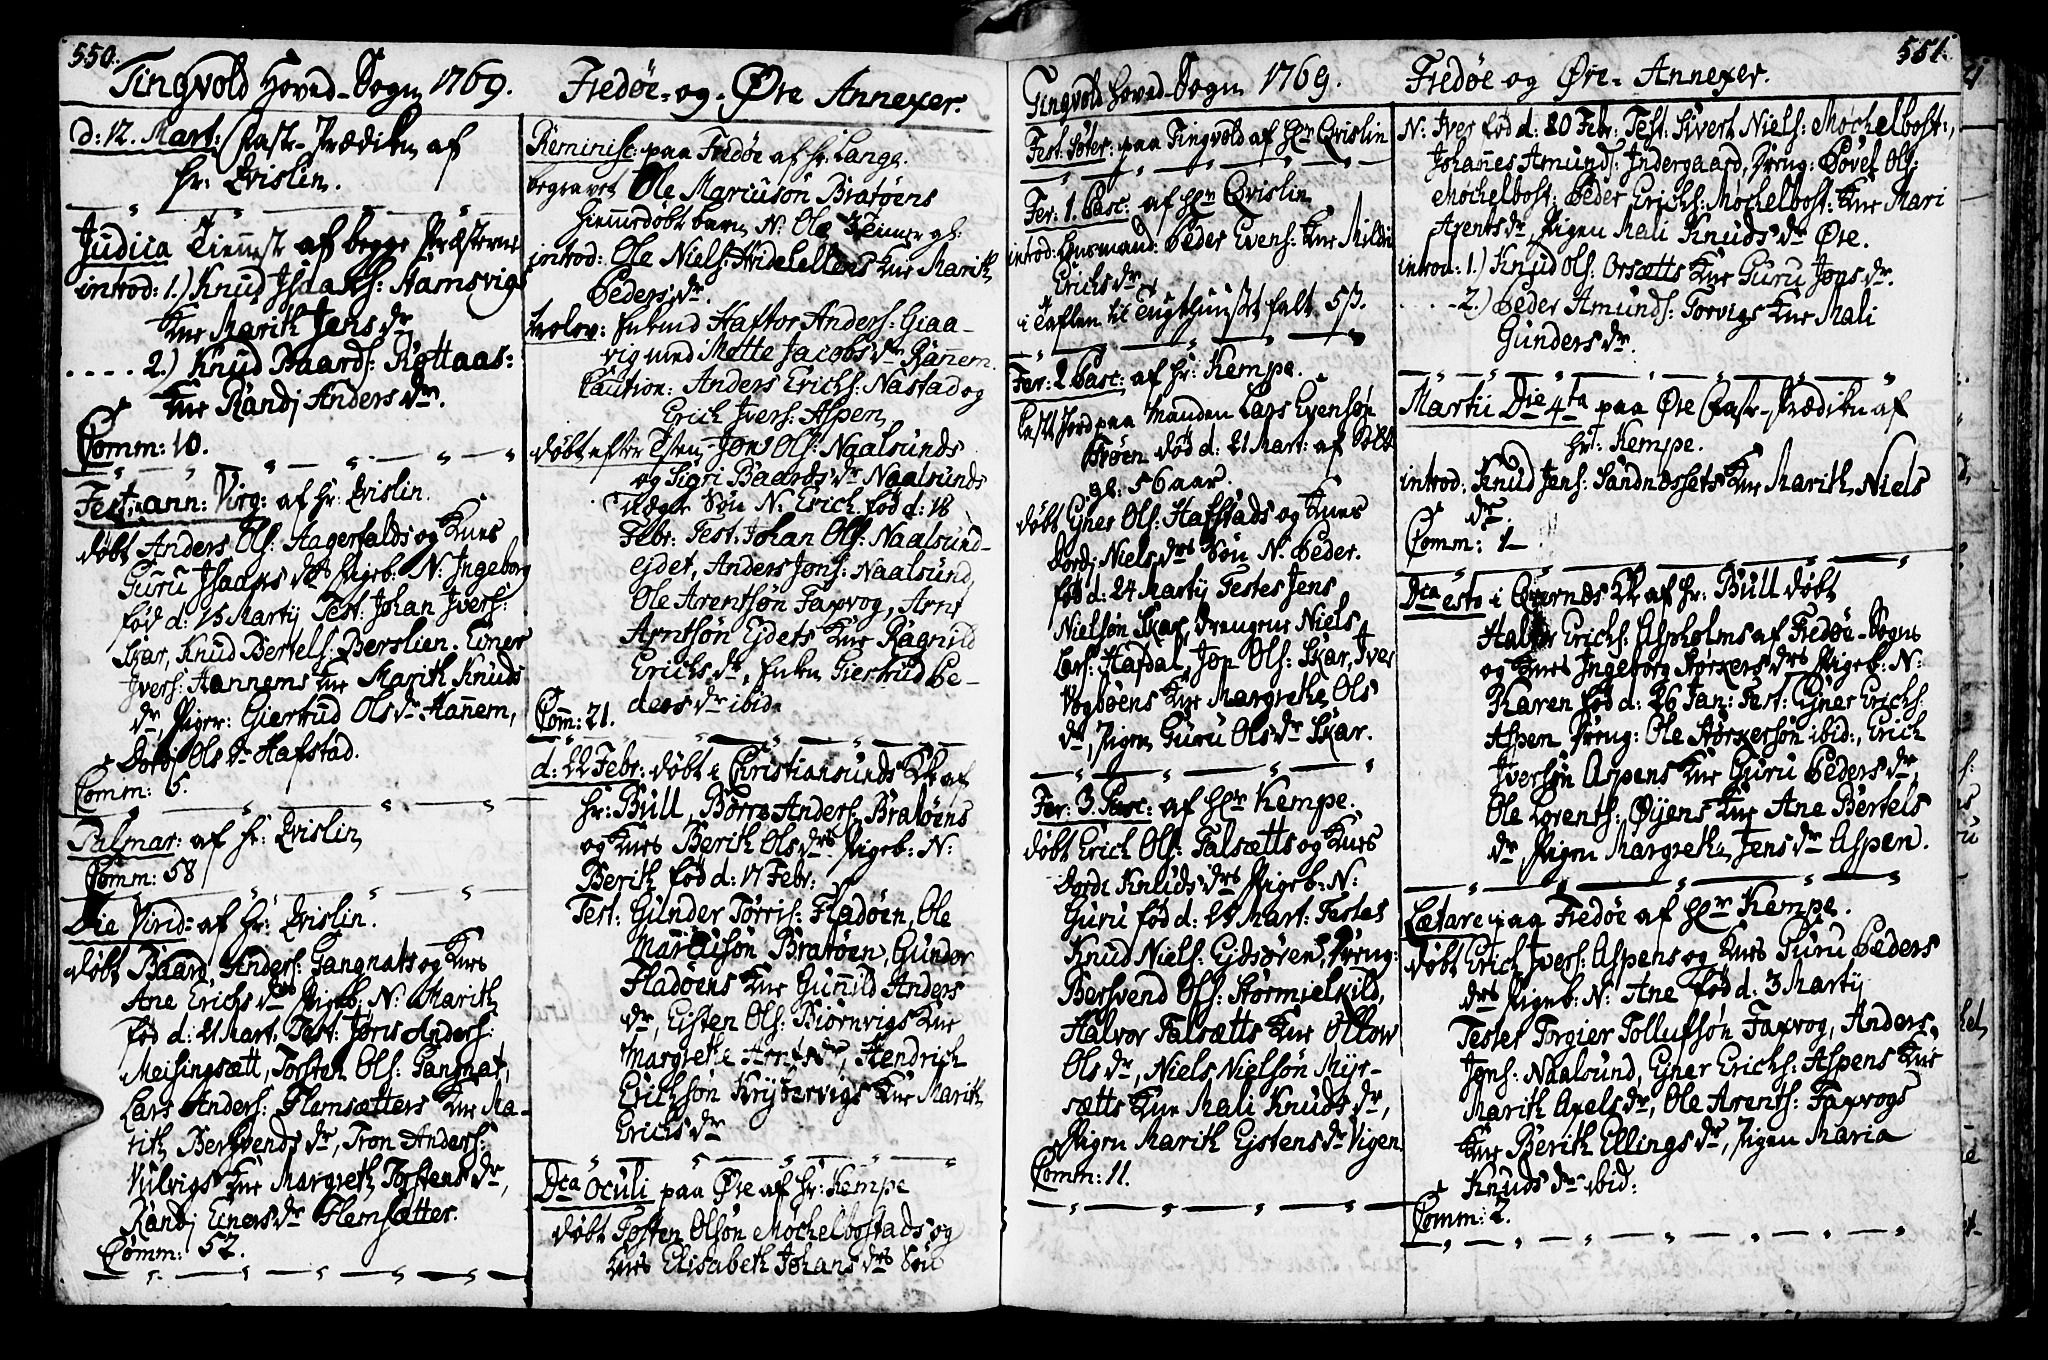 550.
Tingvold Hoved-Sogn 1769.
d: 12. Mart: Fast-Prædiken af
hr: Qvislin.
Judica Tienneste af begge Præsterne
introd: 1.) Knud Isaachs: Hamsvigs
Kne Marith Jens dr
2.) Knud Baards: Røttaas:
Kne Randj Anders dr.
Comm: 10.
Fest: ann: Virg: af hr: Qvislin.
døbt Anders Ols: Hagerfalds og Knes
Guru Isaachs drs Pigeb: N: Ingeborg
fød d: 15 Martij Test: Johan Ivers:
Skar, Knud Bertels: Berslien. Einer
Ivers: Hannems Kne Marith Knuds
dr, Piger: Giertrud Ols dr Hannem,
Dordj Ols dr Hafstad.
Comm: 5.
Palmar: af hr: Qvislin
Comm: 58
Die Virid: af hr: Qvislin.
døbt Baard Anders: Gangnats og Knes
Ane Erichs drs Pigeb: N: Marith
fød d: 21 Mart. Test: Jøris Anders:
Meisingsætt, Torsten Ols: Gangnat,
Lars Anders: Flemsætters Kne Ma-
rith Bersvends dr, Tron Anders:
Vulvigs Kne Margreth Torstens dr,
Randj Einers dr Flemsætter.
Comm: 52.
Fredøe- og- Øre Annexer.
Reminisc: paa Fredøe af hr: Lange.
begravet Ole Marcusøn Bratøens
hiemmedøbt barn N: Ole 3 Timer gl:
introd: Ole Niels: Hvidehellens Kne Marith
Peders dr.
trolov: Enkemd Haftor Anders: Giaa-
vig med Mette Jacobs dr Rannem.
Caution: Anders Erichs: Nastad og
Erich Ivers: Aspen
døbt efter Testen Jon Ols: Naalsunds
og Sigri Baards dr Naalsunds
Uægte Søn N: Erich fød d: 18
Febr: Test: Johan Ols: Naalsund-
ejdet, Anders Jons: Naalsund,
Ole Arentsøn Faxvog, Arne
Arntsøn Ejdets Kne Ragnild
Erichs dr, Enken Giertrud Pe-
ders dr ibid.
Comm: 21.
d: 22 Febr: døbt i Christiansunds Kk af
hr: Bull, Børre Anders: Bratøens
og Knes Berith Ols drs Pigeb: N:
Berith fød d: 17 Febr:
Test: Gunder Tørris: Fladøen, Ole
Marcusøn Bratøen, Gundor
Fladøens Kne Gunnild Anders
dr, Eisten Ols: Biørnvigs Kne
Margrethe Arnts dr, Hendrich
Erichsøn Krybervigs Kne Marith
Erichs dr
Dca Oculi paa Øre af hr: Kempe
døbt Tosten Olsøn Mochelbostads og
Knes Elisabeth Johans drs Søn
551.
Tingvold Hoved-Sogn 1769.
Fest: Soter: paa Tingvold af Hr Qvislin
Fer: 1. Pasc: af Hr Qvislin
introd: Huusmand: Peder Evens: Kne Mildri
Erichs dr
i Taflen til Tugthuuset falt 5 ß.
Fer: 2 Pasc: af hr: Kempe.
Castt Jord paa Manden Lars Evensøn
Brøen død d: 21 Mart: af Sott
gl: 56 aar.
døbt Ejner Ols: Hafstads og Knes
Dordj Niels drs Søn N: Peder.
fød d: 24 Martij Testes Jens
Nielsøn Skar, drengene Niels
Lars: Hafdal, Jon Ols: Skar, Iver
Vogbøens Kne Margrethe Ols
dr, Pigen Guru Ols dr Skar.
Fer: 3 Pasc: af Hr Kempe.
døbt Erich Ols: Falsætts og Knes
Dordj Knuds drs Pigeb: N:
Guru fød d: 24 Mart: Testes
Knud Niels: Ejdsøren, Dreng:
Bersvend Ols: Stormielkild,
Halvor Falsætts Kne Ollow
Ols dr, Niels Nielsøn Myr-
sætts Kne Mali Knuds dr,
Pigen Marith Ejstens dr Vigen
Comm: 11.
Fredøe og Øre- Annexer.
N: Iver fød d: 20 Febr: Test: Sivert Niels: Mochelbost:,
Johannes Amunds: Indergaard, Dreng: Povel Ols:
Mochelbost: Peder Erichs: Mochelbost: Kne Mari
Arents dr, Pigen Mali Knuds dr Øre.
introd: 1.) Knud Ols: Orsætts Kne Guru Jons dr.
2.) Peder Amunds: Torvigs Kne Mali
Gunders dr.
Martii Die 4ta paa Øre Fast-Prædiken af
hr: Kempe.
introd: Knud Jens: Sandnessets Kne Marith Niels
dr.
Comm: 1
Dca esto i Qvernæs Kk af hr: Bull døbt
Halvor Erichs: Aspholms af Fredøe-Sogns
og Knes Ingeborg Størkers drs Pigeb: N:
Karen fød d: 26 Jan: Test: Ejner Erichs:
Aspen Dreng: Ole Størkersøn ibid:, Erich
Iversøn Aspens Kne Guru Peders dr,
Ole Lorents: Øyens Kne Ane Bertels
dr, Pigen Margrethe Jens dr Aspen.
Lætare paa Fredøe af Hr Kempe.
døbt Erich Ivers: Aspens og Knes Guru Peders
drs Pigeb: N: Ane fød d: 3 Martij
Testes Torgier Tollufsøn Faxvog, Anders
Jons: Naalsund, Ejner Erichs: Aspens Kne
Marith Axels dr, Ole Arents: Faxvogs
Kne Berith Ellings dr, Pigen Maria
Knuds dr ibid:
Comm: 2.